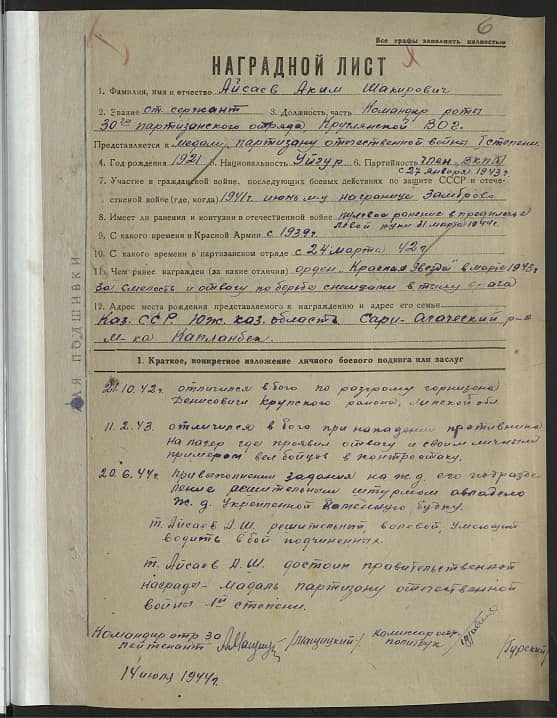 6
Все графы заполнять полностью
НАГРАДНОЙ ЛИСТ
1. Фамилия, имя и отчество Айсаев Аким Шакирович
2. Звание ст. сержант 3. Должность, часть Командир роты
30го партизанского отряда Круглянской ВОГ.
Представляется к Медали „партизану отечественной войны I степени.
4. Год рождения 1921 5. Национальность Уйгур 6. Партийность член ВКП(б)
с 27 января 1943 г.
7. Участие в гражданской войне, последующих боевых действиях по защите СССР и отече-
ственой войне (где, когда) 1941 г. июнь м-ц на границе Замброво
8. Имеет ли ранения и контузии в отечественной войне пулевое ранение в предплечье
левой руки 31 марта 1944 г.
9. С какого времени в Красной Армии с 1939 г.
10. С какого времени в партизанском отряде с 24 марта 42 г
11. Чем ранее награжден (за какие отличия) орден „Красная звезда" в марте 1943 г
за смелость и отвагу по борьбе с в тылу врага
12. Адрес места рождения представляемого к награждению и адрес его семьи
Каз. ССР. Юж. каз. область Сари-Агаческий р-н
м-ка Капланбек.
ДЛЯ ПОДШИВКИ
1. Краткое, конкретное изложение личного боевого подвига или заслуг
21.10.42 г. отличился в бою по разгрому гарнизона
Денисовичи Крупского района, обл.
11.2.43. отличился в бою при нападении противника
на лагер где проявил отвагу и своим личным
примером вел бойцов в контратаку.
20.6.44 г. при выполнении задания на ж.д. его подразде
ление решительным штурмом овладело
ж.д. Укрепленной Каменную будку.
т. Айсаев А.Ш. решительный, волевой, умеющий
водить в бой подчиненных.
т. Айсаев А.Ш. достоин правительственной
награды - медаль партизану отечественной
войны Iй степени.
Командир отр 30 Комиссар отр.
лейтенант политрук /Гурский/
14 июля 1944 г.